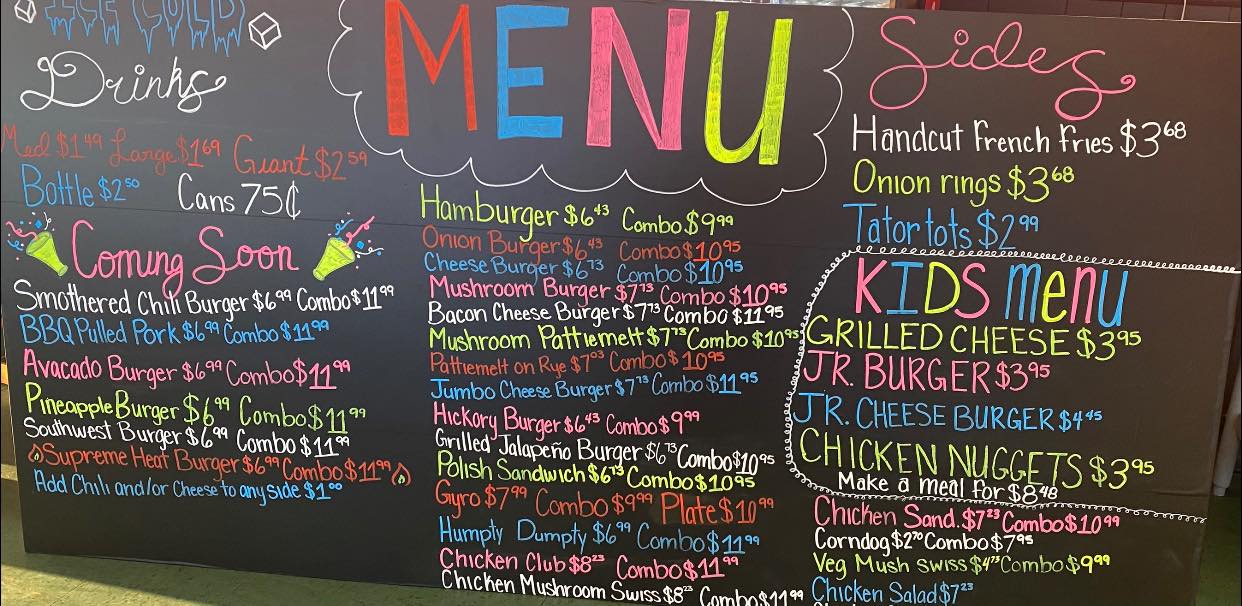 ICE COLD
Drinks
Med $1.49 Large $1.69 Giant $2.59
Bottle $2.50 Cans 75¢
Coming Soon
Smothered Chili Burger $6.99 Combo $11.99
BBQ Pulled Pork $6.99 Combo $11.99
Avacado Burger $6.99 Combo $11.99
Pineapple Burger $6.99 Combo $11.99
Southwest Burger $6.99 Combo $11.99
Supreme Heat Burger $6.99 Combo $11.99
Add Chili and/or Cheese to any side $1.00
MENU
Hamburger $6.43 Combo $9.99
Onion Burger $6.43 Combo $10.95
Cheese Burger $6.73 Combo $10.95
Mushroom Burger $7.73 Combo $10.95
Bacon Cheese Burger $7.73 Combo $11.95
Mushroom Pattiemelt $7.73 Combo $10.95
Pattiemelt on Rye $7.03 Combo $10.95
Jumbo Cheese Burger $7.73 Combo $11.95
Hickory Burger $6.43 Combo $9.99
Grilled Jalapeño Burger $6.73 Combo $10.95
Polish Sandwich $6.73 Combo $10.95
Gyro $7.99 Combo $9.99 Plate $10.99
Humpty Dumpty $6.99 Combo $11.99
Chicken Club $8.23 Combo $11.99
Chicken Mushroom Swiss $8.23 Combo $11.99
Sides
Handcut French Fries $3.68
Onion rings $3.68
Tator tots $2.99
KIDS Menu
GRILLED CHEESE $3.95
JR. BURGER $3.95
JR. CHEESE BURGER $4.45
CHICKEN NUGGETS $3.95
Make a meal for $8.48
Chicken Sand. $7.23 Combo $10.99
Corndog $2.70 Combo $7.95
Veg Mush Swiss $4.73 Combo $9.99
Chicken Salad $7.23